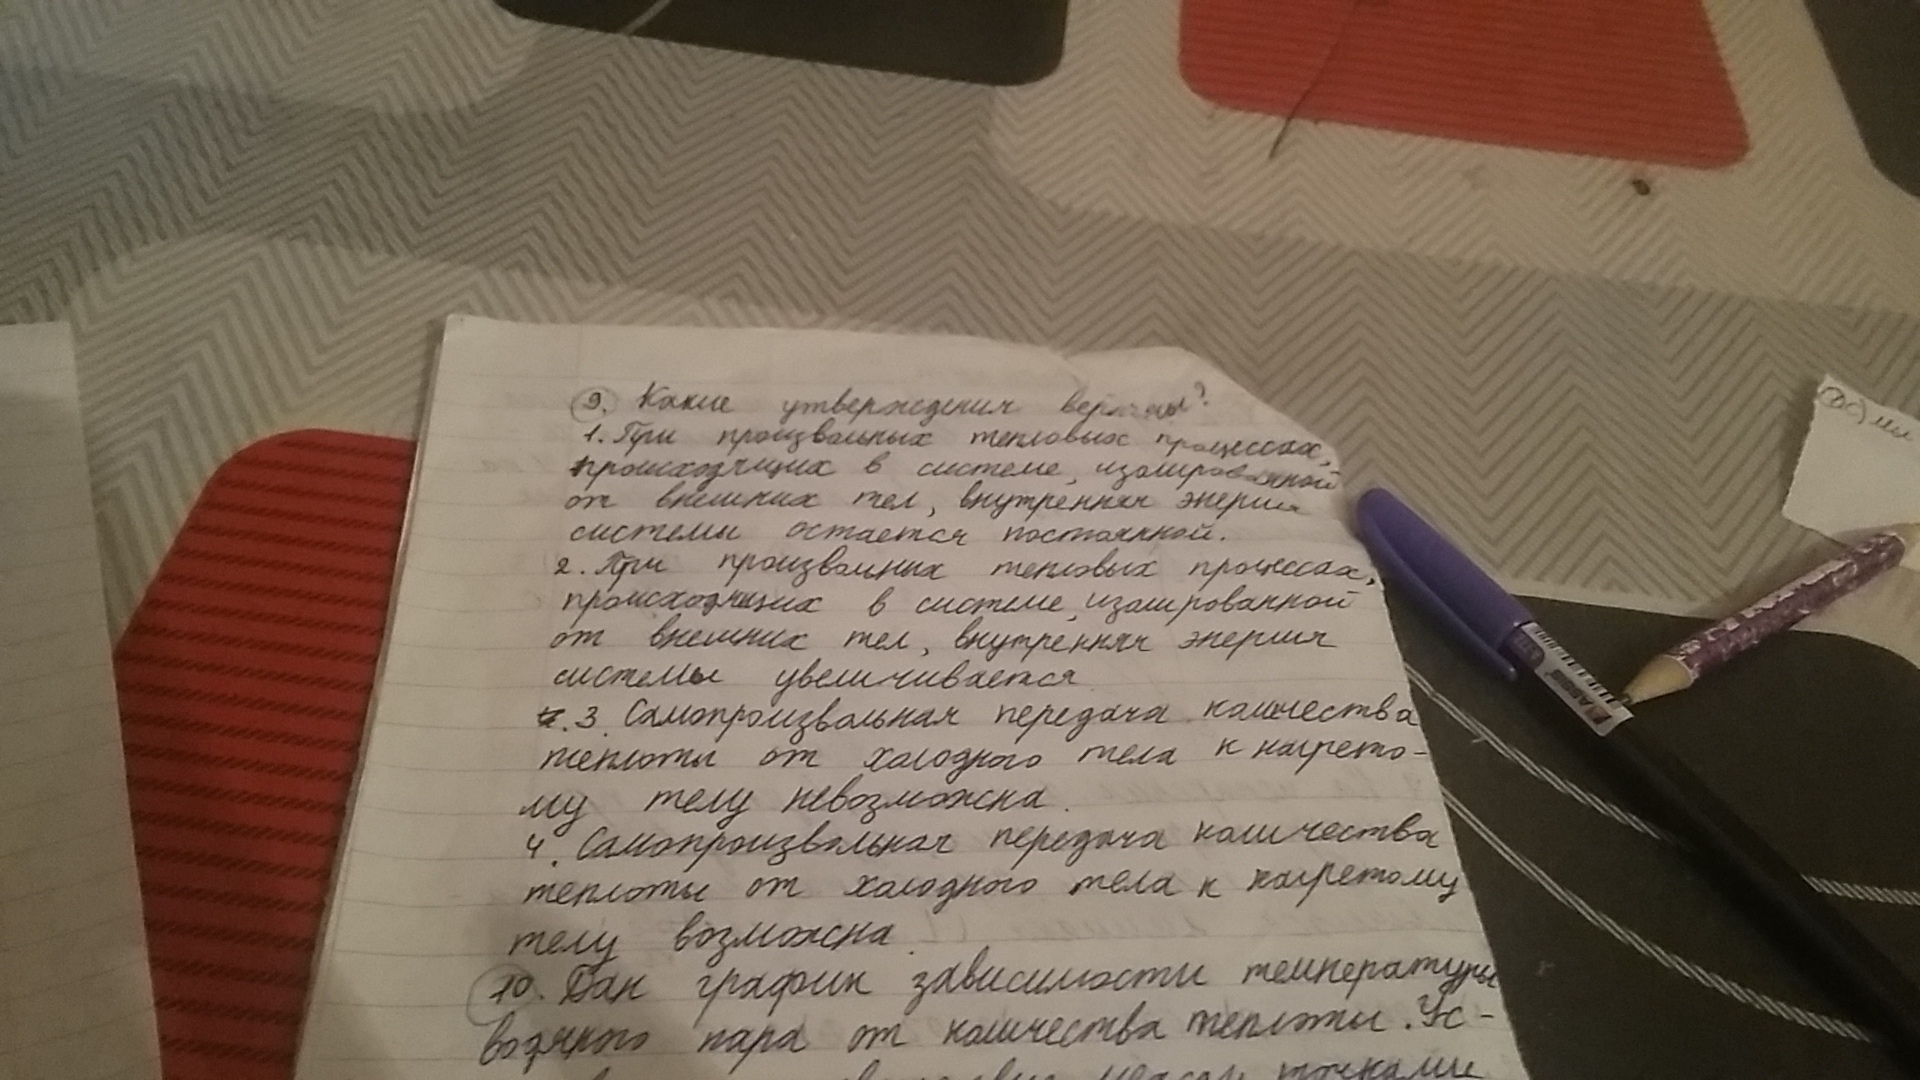 9. Какие утверждения верны?
1. При произвольных тепловых процессах,
происходящих в системе, изолированной
от внешних тел, внутренняя энергия
системы остается постоянной.
2. При произвольных тепловых процессах,
происходящих в системе, изолированной
от внешних тел, внутренняя энергия
системы увеличивается
3. Самопроизвольная передача количества
теплоты от холодного тела к нагрето-
му телу невозможна.
4. Самопроизвольная передача количества
теплоты от холодного тела к нагретому
телу возможна.
10. Дан график зависимости температуры
водяного пара от количества теплоты. Ус-
между точками